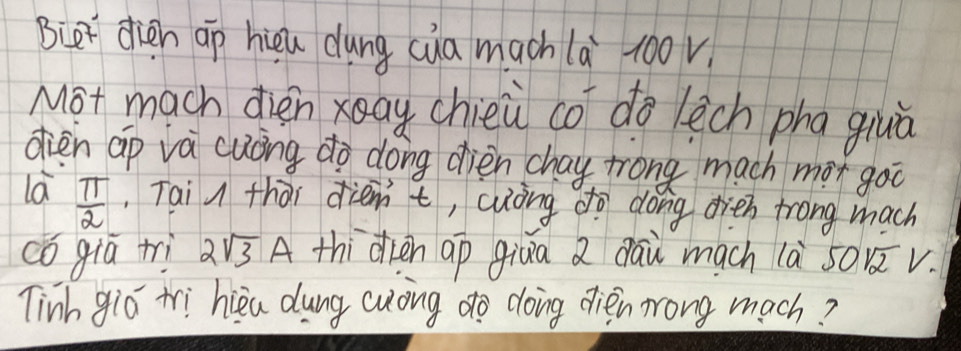 Biết điện áp hiệu dụng của mạch là 100 V.
Một mạch điện xoay chiều có độ lệch pha giữa
điện áp và cường độ dòng điện chạy trong mạch một góc
là π/2. Tại 1 thời điểm t, cường độ dòng điện trong mạch
có giá trị 2√3 A thì điện áp giữa 2 đầu mạch là 50√2 V.
Tính giá trị hiệu dụng cường độ dòng điện trong mạch?